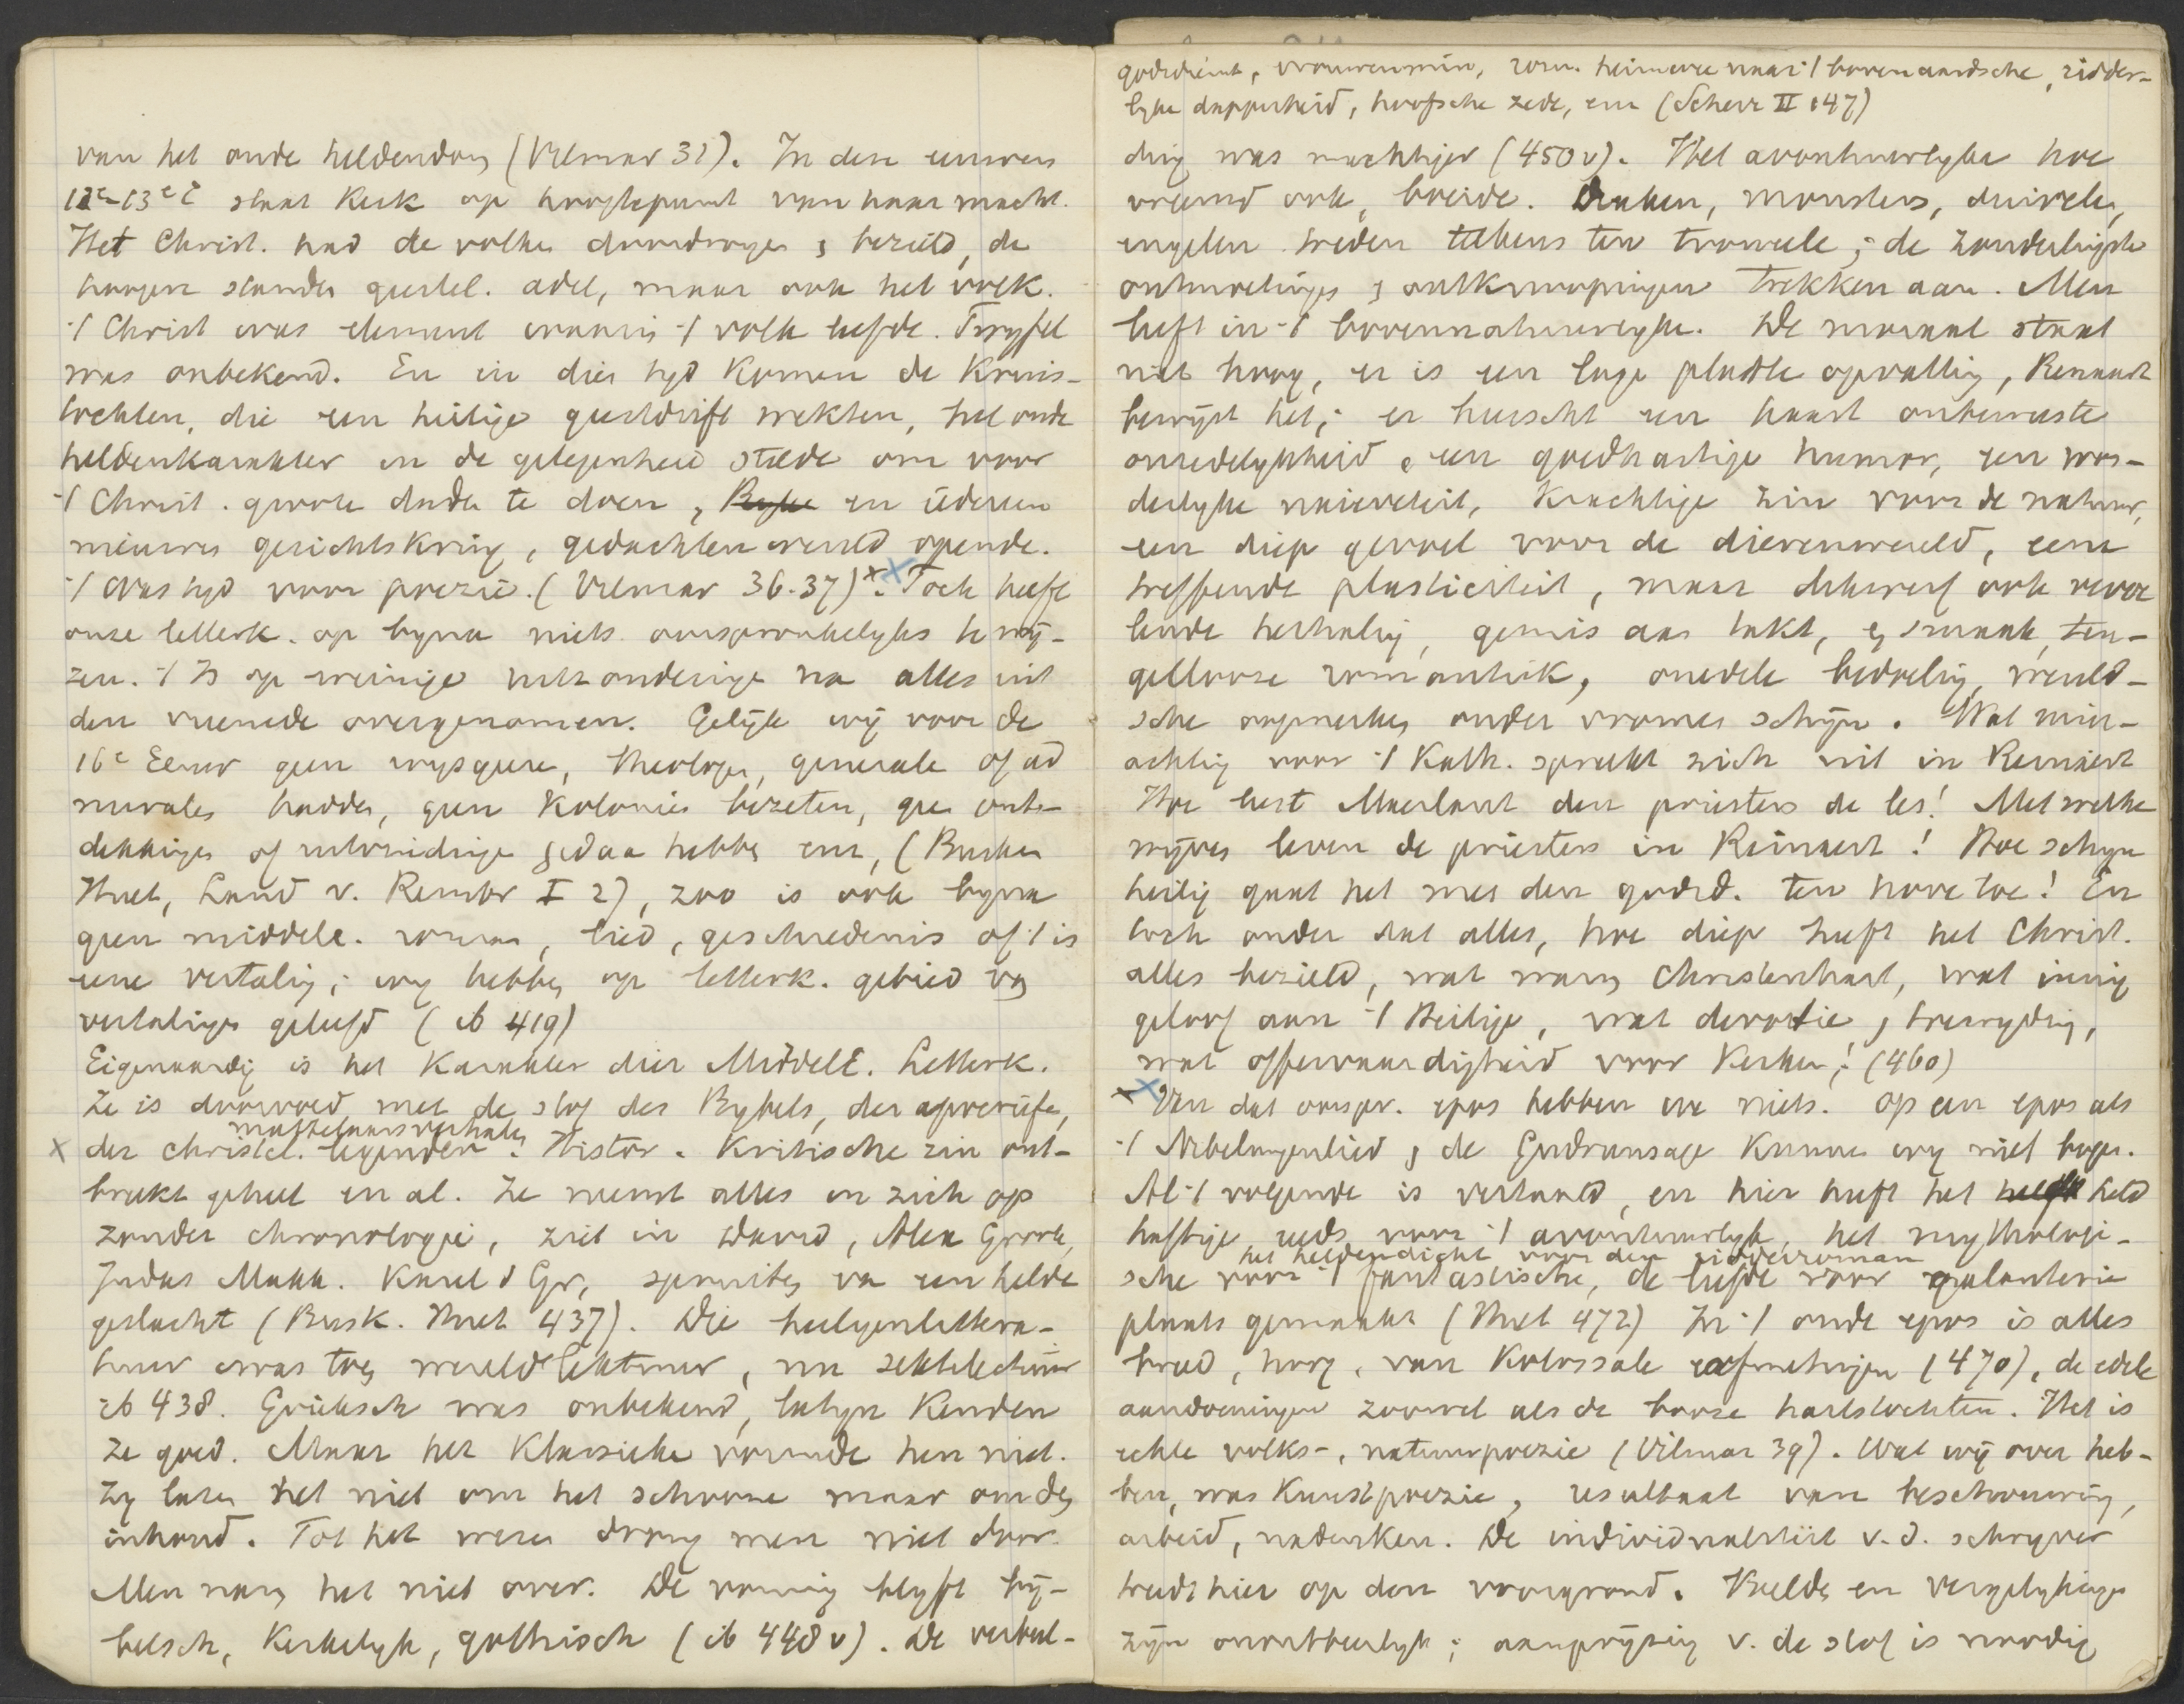 van het oude heldendom (Vilmar 31). In deze eeuwen
12e-13e E staat Kerk op hoogtepunt van haar macht.
Het Christ. had de volken doordrongen & bezield, de
hoogere standen geestel. adel, maar ook het volk.
't Christ was element waarin 't volk leefde. Twyfel
was onbekend. En in dien tyd Komen de Kruis-
tochten, die een heilige geestdrift wekten, het oude
heldenkarakter in de gelegenheid stelde om voor
't Christ. groote daden te doen, en iederen
nieuwen gezichtskring, gedachtenwereld opende.
't Was tyd voor poezië. (Vilmar 36.37)x. Toch heeft
onze letterk. op byna niets oorspronkelyks te wij-
zen. 't Is op weinige uitzonderingen na alles uit
den vreemde overgenomen. Gelijk wij voor de
16e Eeuw geen wysgeeren, theologen, generale of ad
miraals hadden, geen Kolonies bezeten, geen ont-
dekkingen of uitvindingen gedaan hebben enz, (Busken
Huet, Land v. Rembr I 2), zoo is ook byna
geen middele. roman, lied, geschiedenis of 't is
eene vertaling; wy hebben op letterk. gebied van
vertalingen geleefd (ib 419)
Eigenaardig is het Karakter dier MiddelE. Letterk.
Ze is doorvoed met de stof des Bybels, der apocriefe,
martelaarsverhalen
x der christel. legenden. Histor. Kritische zin ont-
breekt geheel en al. Ze neemt alles in zich op
zonder chronologie, ziet in David, Alex Groote,
Judas Makk. Karel d Gr, spruiten van een helden
geslacht (Busk. Huet 437). Die heiligenlittera-
tuur was toen wereldlektuur, nu sektelectuur
ib 438. Grieksch was onbekend, latyn Kenden
ze goed. Maar het Klassieke vormde hen niet.
Zy lazen het niet om het schoone maar om den
inhoud. Tot het wezen drong men niet door.
Men nam het niet over. De vorming blyft by-
belsch, Kerkelyk, gothisch (ib 448 v). De verbeel-
godsdienst, vrouwenmin, rom. heimwee naar 't bovenaardsche, ridder-
lyke dapperheid, hoofsche zede, enz (Scherr II 147)
ding was machtiger (450 v). Het avontuurlyke hoe
vreemd ook, boeide. Draken, monsters, duivelen,
engelen treden telkens ten tooneele; de zonderlingste
ontmoetingen & ontknoopingen trekken aan. Men
leeft in 't bovennatuurlyke. De moraal staat
niet hoog, er is een lage plastiek opvallig, Reinaart
bewyst het; er heerscht een haast onbewuste
onzedelykheid & een goedhartige humor, een won-
derlyke naieveteit, Krachtige zin voor de natuur,
een diep gevoel voor de dierenwereld, eene
treffende plasticiteit, maar dikwerf ook verve
lende herhaling, gemis aan takt, & smaak, teu-
gellooze romantiek, onedele bedoeling, wereld-
sche oogmerken onder vromen schijn. Wat min-
achting voor 't Kath. spreekt zich uit in Reinaert
Hoe leest Maerlant den priesters de les! Met welke
wijven leven de priesters in Reinaert! Hoe schyn
heilig gaat het met den godsd. ten hove toe! En
toch onder dat alles, hoe diep heeft het Christ.
alles bezield, wat warm Christenhart, wat innig
geloof aan 't Heilige, wat devotie, & toewyding,
wat offervaardigheid voor Kerken,! (460)
x Van dat oorspr. epos hebben we niets. op een epos als
't Nibelungenlied & de Gudrunsage Kunnen wy niet bogen.
Al 't volgende is vertaald, en hier heeft het held
haftige reeds voor 't avontuurlyk, het mythologi-
het heldendicht voor den ridderroman
sche voor 't fantastische, de liefde voor galanterie
plaats gemaakt (Huet 472) In 't oude epos is alles
breed, hoog, van Kolossale afmetingen (470), de edele
aandoeningen zoowel als de booze hartstochten. Het is
echte volks-, natuurpoezie (Vilmar 39). Wat wij over heb-
ben, was Kunstpoezie, resultaat van beschouwing,
arbeid, nadenken. De individualiteit v.d. schryver
treedt hier op den voorgrond. Beelden en vergelykingen
zijn onontbeerlyk; aanprijzing v. de stof is noodig